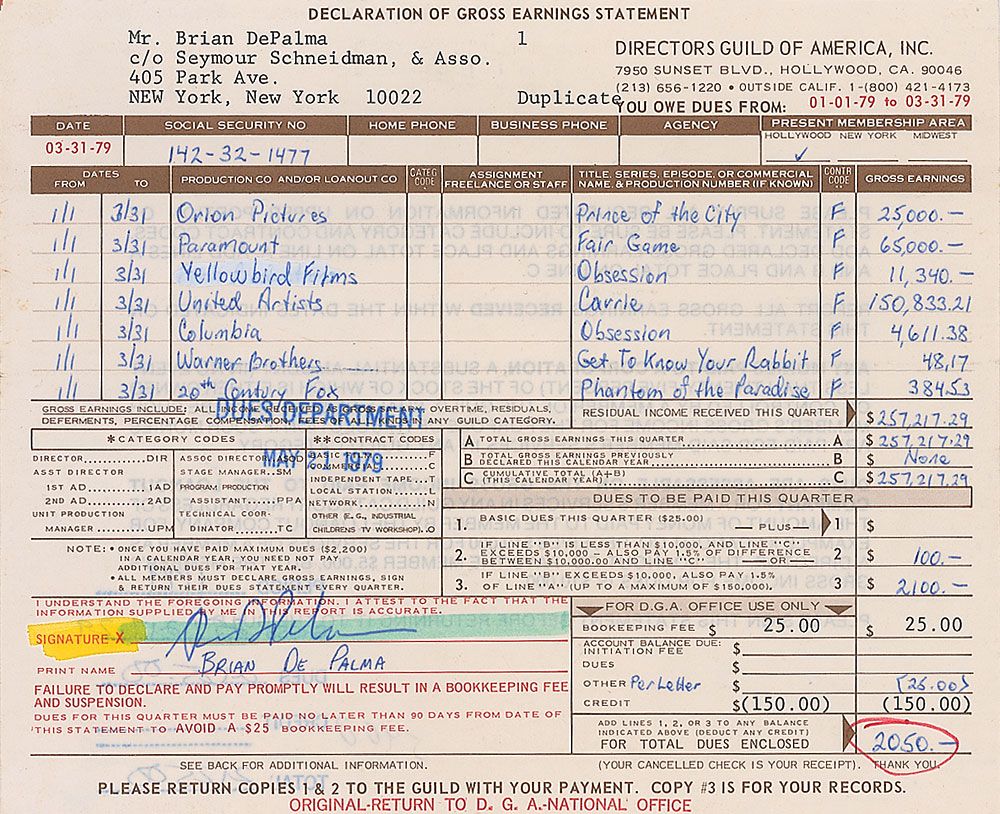 DECLARATION OF GROSS EARNINGS STATEMENT
Mr. Brian DePalma 1
c/o Seymour Schneidman, & Asso.
405 Park Ave.
NEW York, New York 10022 Duplicate
DIRECTORS GUILD OF AMERICA, INC.
7950 SUNSET BLVD., HOLLYWOOD, CA. 90046
(213) 656-1220 • OUTSIDE CALIF. 1-(800) 421-4173
YOU OWE DUES FROM: 01-01-79 to 03-31-79
DATE SOCIAL SECURITY NO HOME PHONE BUSINESS PHONE AGENCY PRESENT MEMBERSHIP AREA
HOLLYWOOD NEW YORK MIDWEST
03-31-79 142-32-1477 ✓
DATES FROM TO PRODUCTION CO AND/OR LOANOUT CO CATEG CODE * ASSIGNMENT FREELANCE OR STAFF TITLE, SERIES, EPISODE, OR COMMERCIAL NAME, & PRODUCTION NUMBER (IF KNOWN) CONTR CODE ** GROSS EARNINGS
1/1 3/31 Orion Pictures Prince of the City F 25,000.—
1/1 3/31 Paramount Fair Game F 65,000.—
1/1 3/31 Yellowbird Films Obsession F 11,340.—
1/1 3/31 United Artists Carrie F 150,833.21
1/1 3/31 Columbia Obsession F 4,611.38
1/1 3/31 Warner Brothers Get To Know Your Rabbit F 48.17
1/1 3/31 20th Century Fox Phantom of the Paradise F 384.53
GROSS EARNINGS INCLUDE: ALL INCOME RECEIVED AS GROSS SALARY, OVERTIME, RESIDUALS,
DEFERMENTS, PERCENTAGE COMPENSATION, FEES OF ALL KINDS IN ANY GUILD CATEGORY.
DUES DEPARTMENT
MAY 21 1979
RESIDUAL INCOME RECEIVED THIS QUARTER $257,217.29
A TOTAL GROSS EARNINGS THIS QUARTER A $257,217.29
B TOTAL GROSS EARNINGS PREVIOUSLY DECLARED THIS CALENDAR YEAR B $ None
C CUMULATIVE TOTAL (A+B) (THIS CALENDAR YEAR) C $257,217.29
* CATEGORY CODES
DIRECTOR DIR
ASST DIRECTOR
1ST AD
2ND AD 2AD
UNIT PRODUCTION
MANAGER UPM
ASSOC DIRECTOR ASOD
STAGE MANAGER SM
PROGRAM PRODUCTION
ASSISTANT PPA
TECHNICAL COOR-
DINATOR TC
** CONTRACT CODES
BASIC F
COMMERCIAL C
INDEPENDENT TAPE T
LOCAL STATION L
NETWORK N
OTHER (E.G., INDUSTRIAL
CHILDRENS TV WORKSHOP) O
DUES TO BE PAID THIS QUARTER
1. BASIC DUES THIS QUARTER ($25.00) PLUS 1 $
2. IF LINE "B" IS LESS THAN $10,000, AND LINE "C" EXCEEDS $10,000 – ALSO PAY 1.5% OF DIFFERENCE BETWEEN $10,000.00 AND LINE "C" OR 2 $ 100.—
3. IF LINE "B" EXCEEDS $10,000, ALSO PAY 1.5% OF LINE "A" (UP TO A MAXIMUM OF $150,000). 3 2100.—
NOTE: • ONCE YOU HAVE PAID MAXIMUM DUES ($2,200)
IN A CALENDAR YEAR, YOU NEED NOT PAY
ADDITIONAL DUES FOR THAT YEAR.
• ALL MEMBERS MUST DECLARE GROSS EARNINGS, SIGN
RETURN THEIR DUES STATEMENT EVERY QUARTER.
I UNDERSTAND THE FOREGOING INFORMATION. I ATTEST TO THE FACT THAT THE
INFORMATION SUPPLIED BY ME IN THIS REPORT IS ACCURATE.
SIGNATURE-X
PRINT NAME BRIAN DE PALMA
FAILURE TO DECLARE AND PAY PROMPTLY WILL RESULT IN A BOOKKEEPING FEE
AND SUSPENSION.
DUES FOR THIS QUARTER MUST BE PAID NO LATER THAN 90 DAYS FROM DATE OF
THIS STATEMENT TO AVOID A $25 BOOKKEEPING FEE.
FOR D.G.A. OFFICE USE ONLY
BOOKEEPING FEE $ 25.00 $ 25.00
ACCOUNT BALANCE DUE:
INITIATION FEE $
DUES $
OTHER Per Letter $ (25.00)
CREDIT $(150.00) (150.00)
ADD LINES 1, 2, OR 3 TO ANY BALANCE
INDICATED ABOVE (DEDUCT ANY CREDIT)
FOR TOTAL DUES ENCLOSED $ 2050.—
SEE BACK FOR ADDITIONAL INFORMATION. (YOUR CANCELLED CHECK IS YOUR RECEIPT). THANK YOU.
PLEASE RETURN COPIES 1 & 2 TO THE GUILD WITH YOUR PAYMENT. COPY #3 IS FOR YOUR RECORDS.
ORIGINAL-RETURN TO D. G. A.-NATIONAL OFFICE